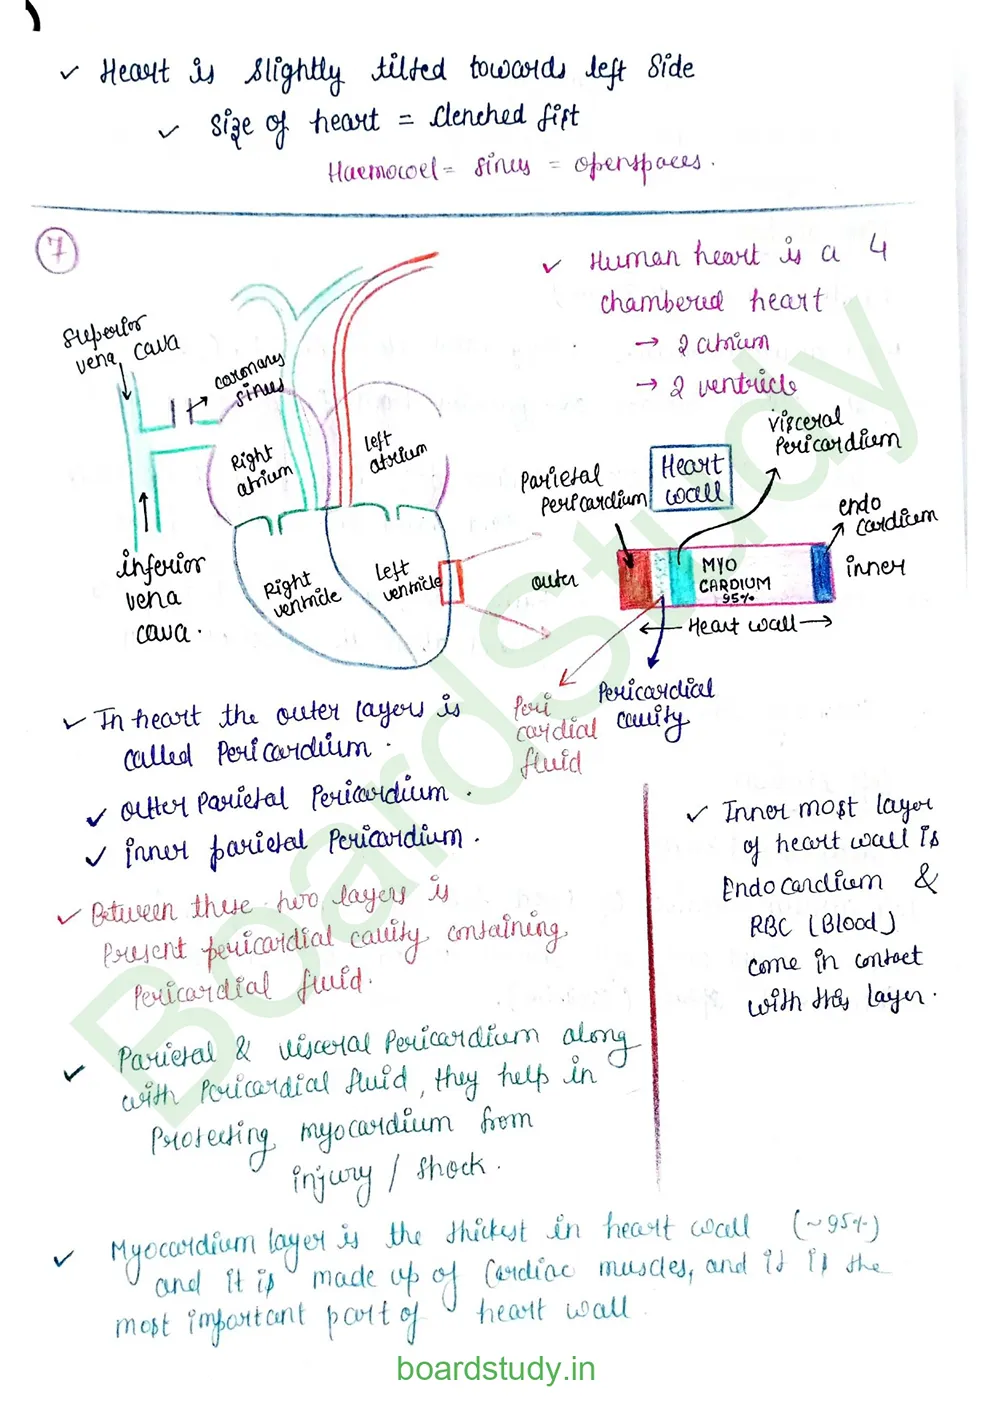 ✓ Heart is slightly tilted towards left side
✓ Size of heart = Clenched fist
Haemocoel = sinus = openspaces.
7
✓ Human heart is a 4
chambered heart
→ 2 atrium
→ 2 ventricle
Superior
vena cava
coronary
sinus
Right
atrium
Left
atrium
Right
ventricle
Left
ventricle
inferior
vena
cava.
Heart
wall
Visceral
Pericardium
Parietal
Pericardium
endo
cardium
outer
MYO
CARDIUM
95%
inner
← Heart wall →
Peri
cardial
fluid
Pericardial
cavity
✓ In heart the outer layers is
called Pericardium.
✓ outter Parietal Pericardium.
✓ inner parietal Pericardium.
✓ Between these two layers is
Present pericardial cavity containing
Pericardial fluid.
✓ Inner most layer
of heart wall is
Endocardium &
RBC (Blood)
come in contact
with this layer.
✓ Parietal & visceral Pericardium along
with Pericardial fluid, they help in
Protecting myocardium from
injury / shock.
✓ Myocardium layer is the thickest in heart wall (~95%)
and it is made up of Cardiac muscles, and it is the
most important part of heart wall.
BoardStudy
boardstudy.in